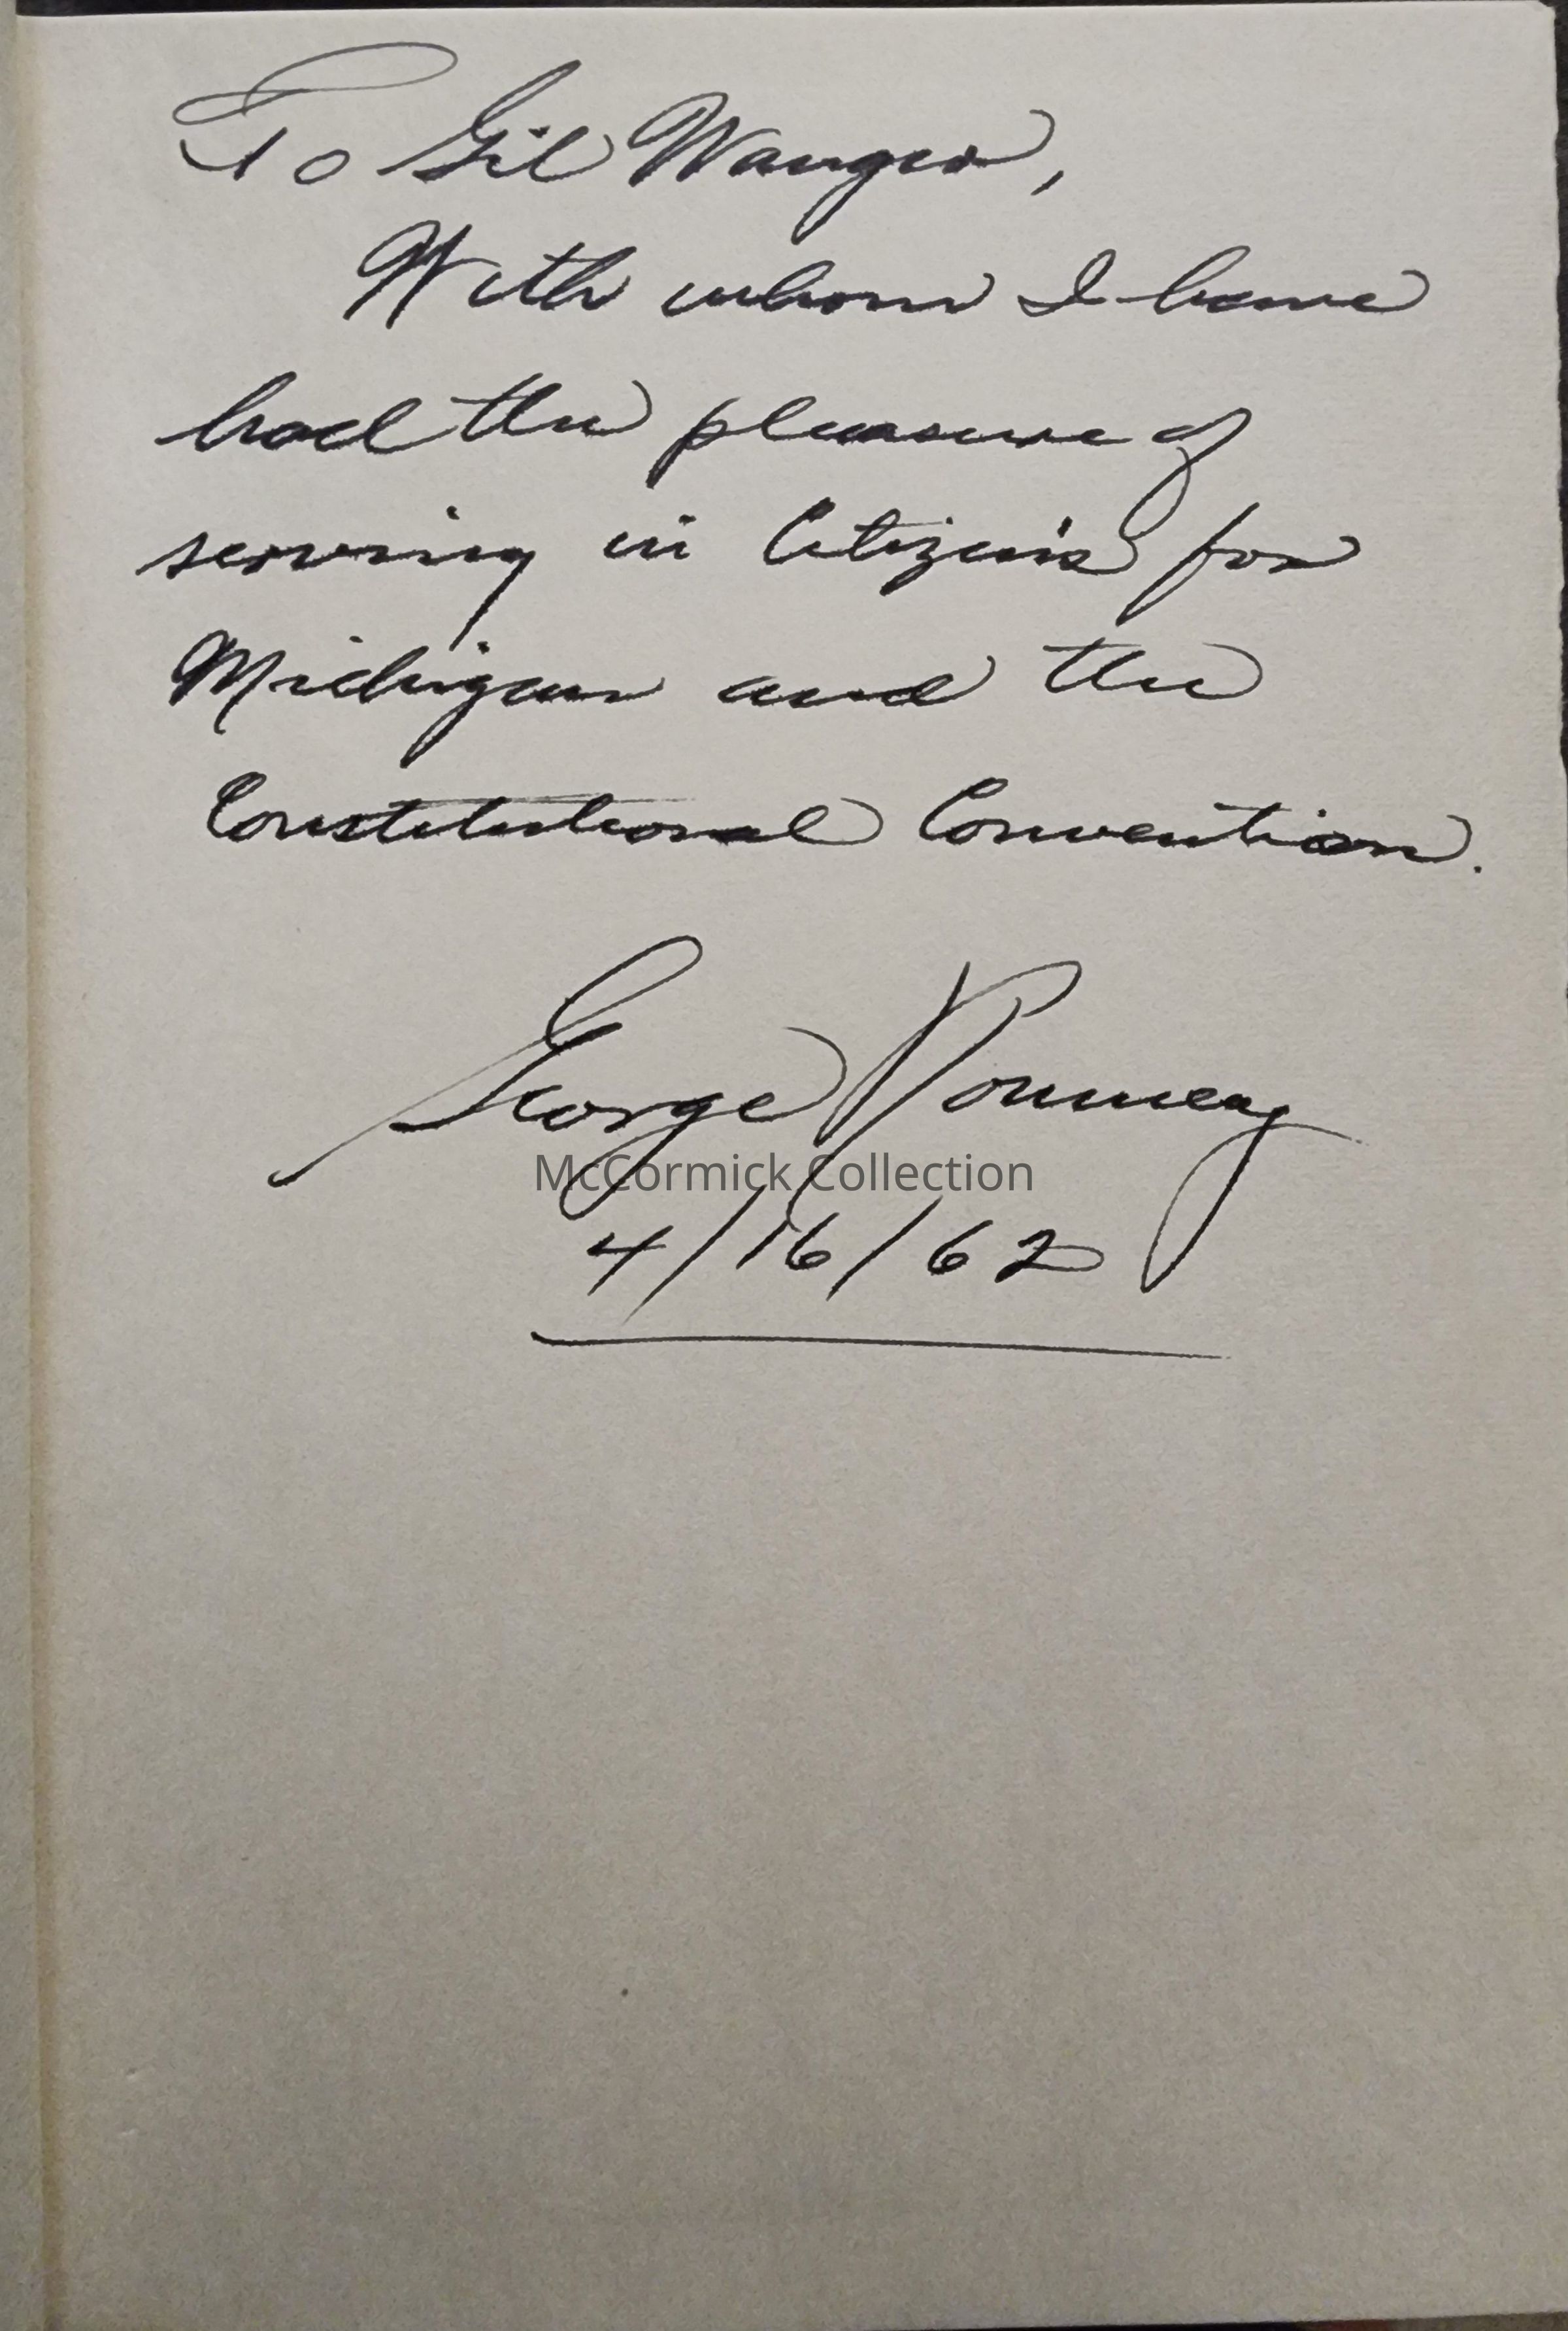 To Gil Wanger,
With whom I have
had the pleasure of
serving in Citizens for
Michigan and the
Constitutional Convention.
George Romney
McCormick Collection
4/16/62